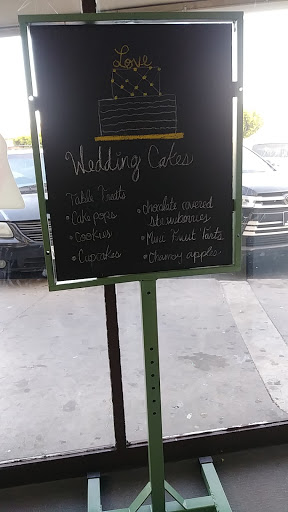 Love
Wedding Cakes
Table Treats
• Cake pops
• Cookies
• Cupcakes
• Chocolate covered
strawberries
• Mini Fruit Tarts
• Chamoy apples